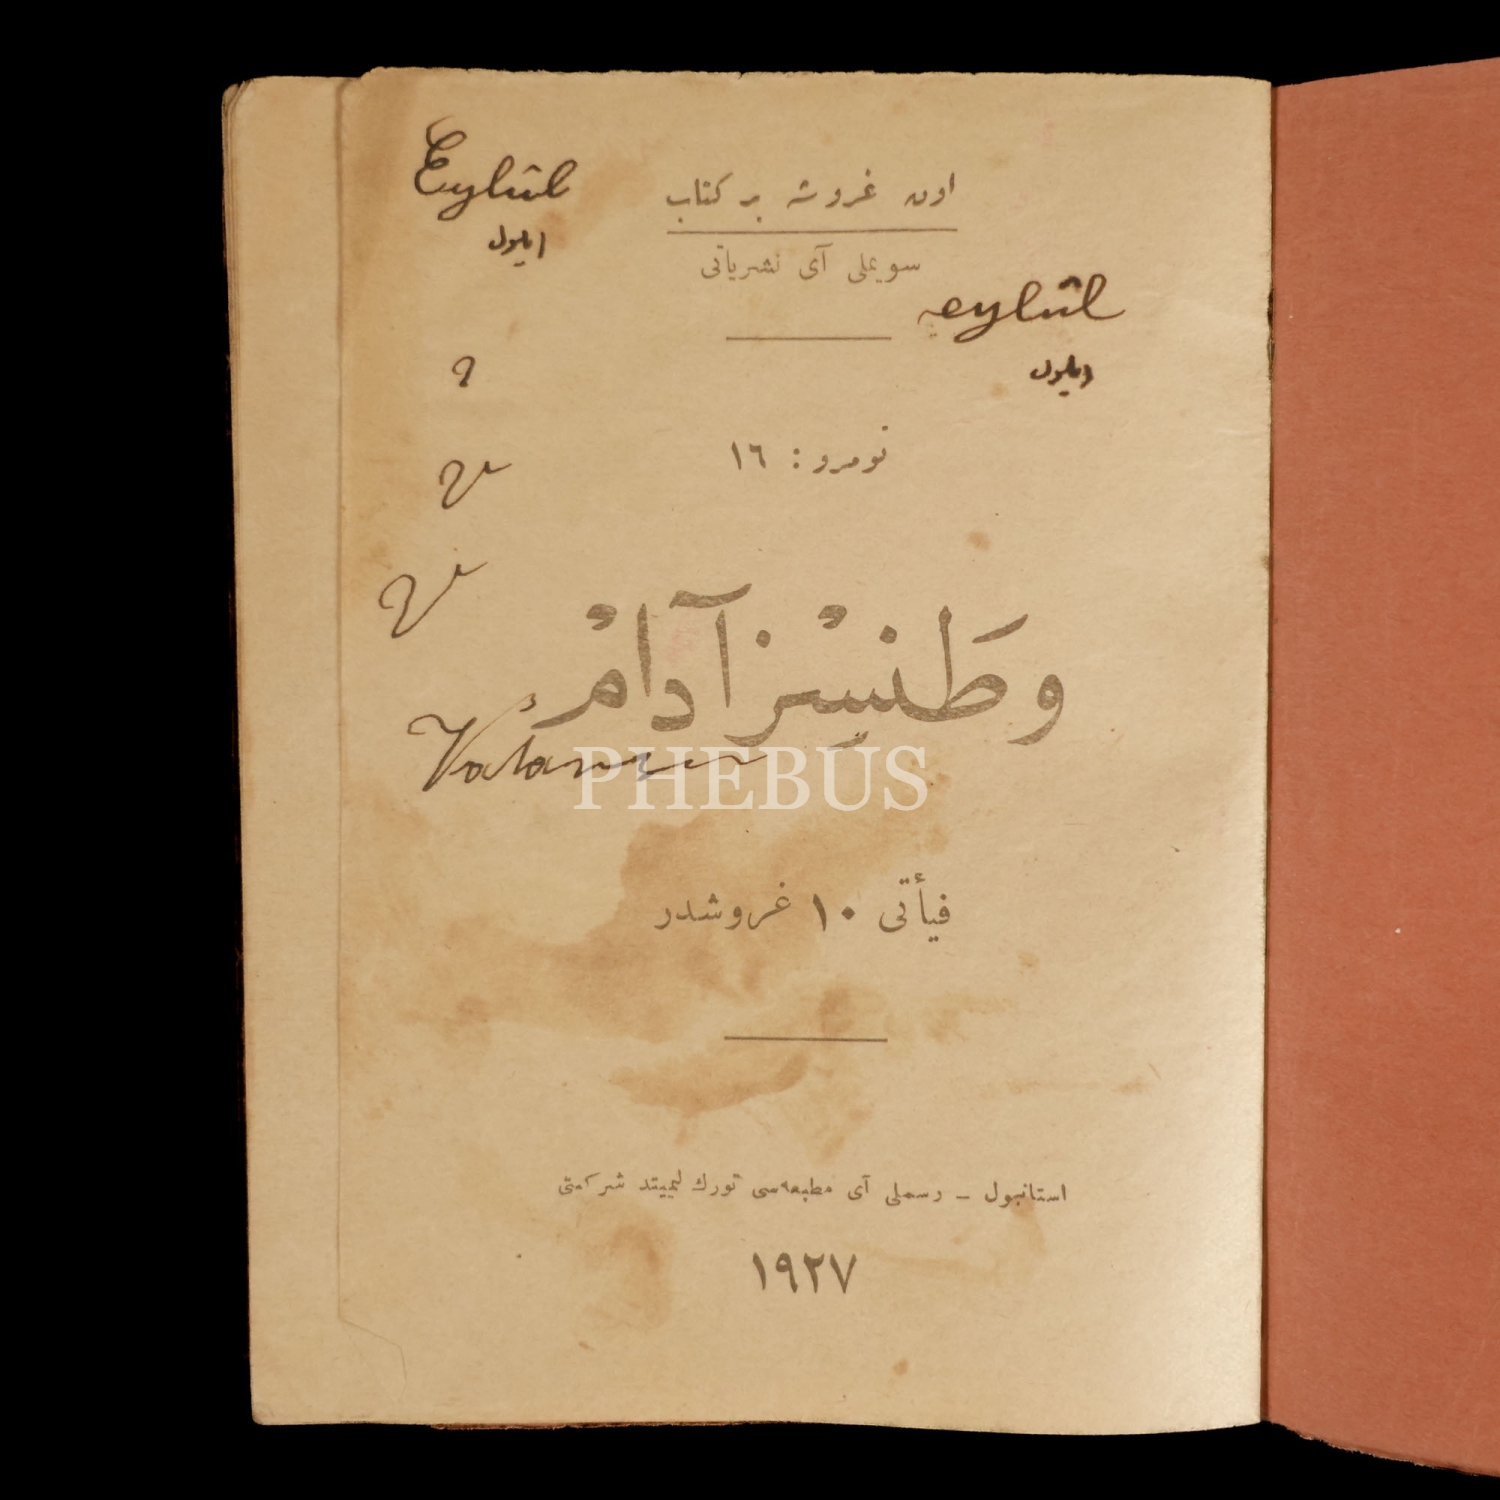 Eylûl
ايلول
اون غروشه بر كتاب
سويملى آى نشرياتى
eylûl
ايلول
نومرو : ١٦
وطنسز آدام
Vatansız
PHEBUS
فيأتى ١٠ غروشدر
استانبول – رسملى آى مطبعه‌سى تورك ليميتد شركتى
١٩٢٧